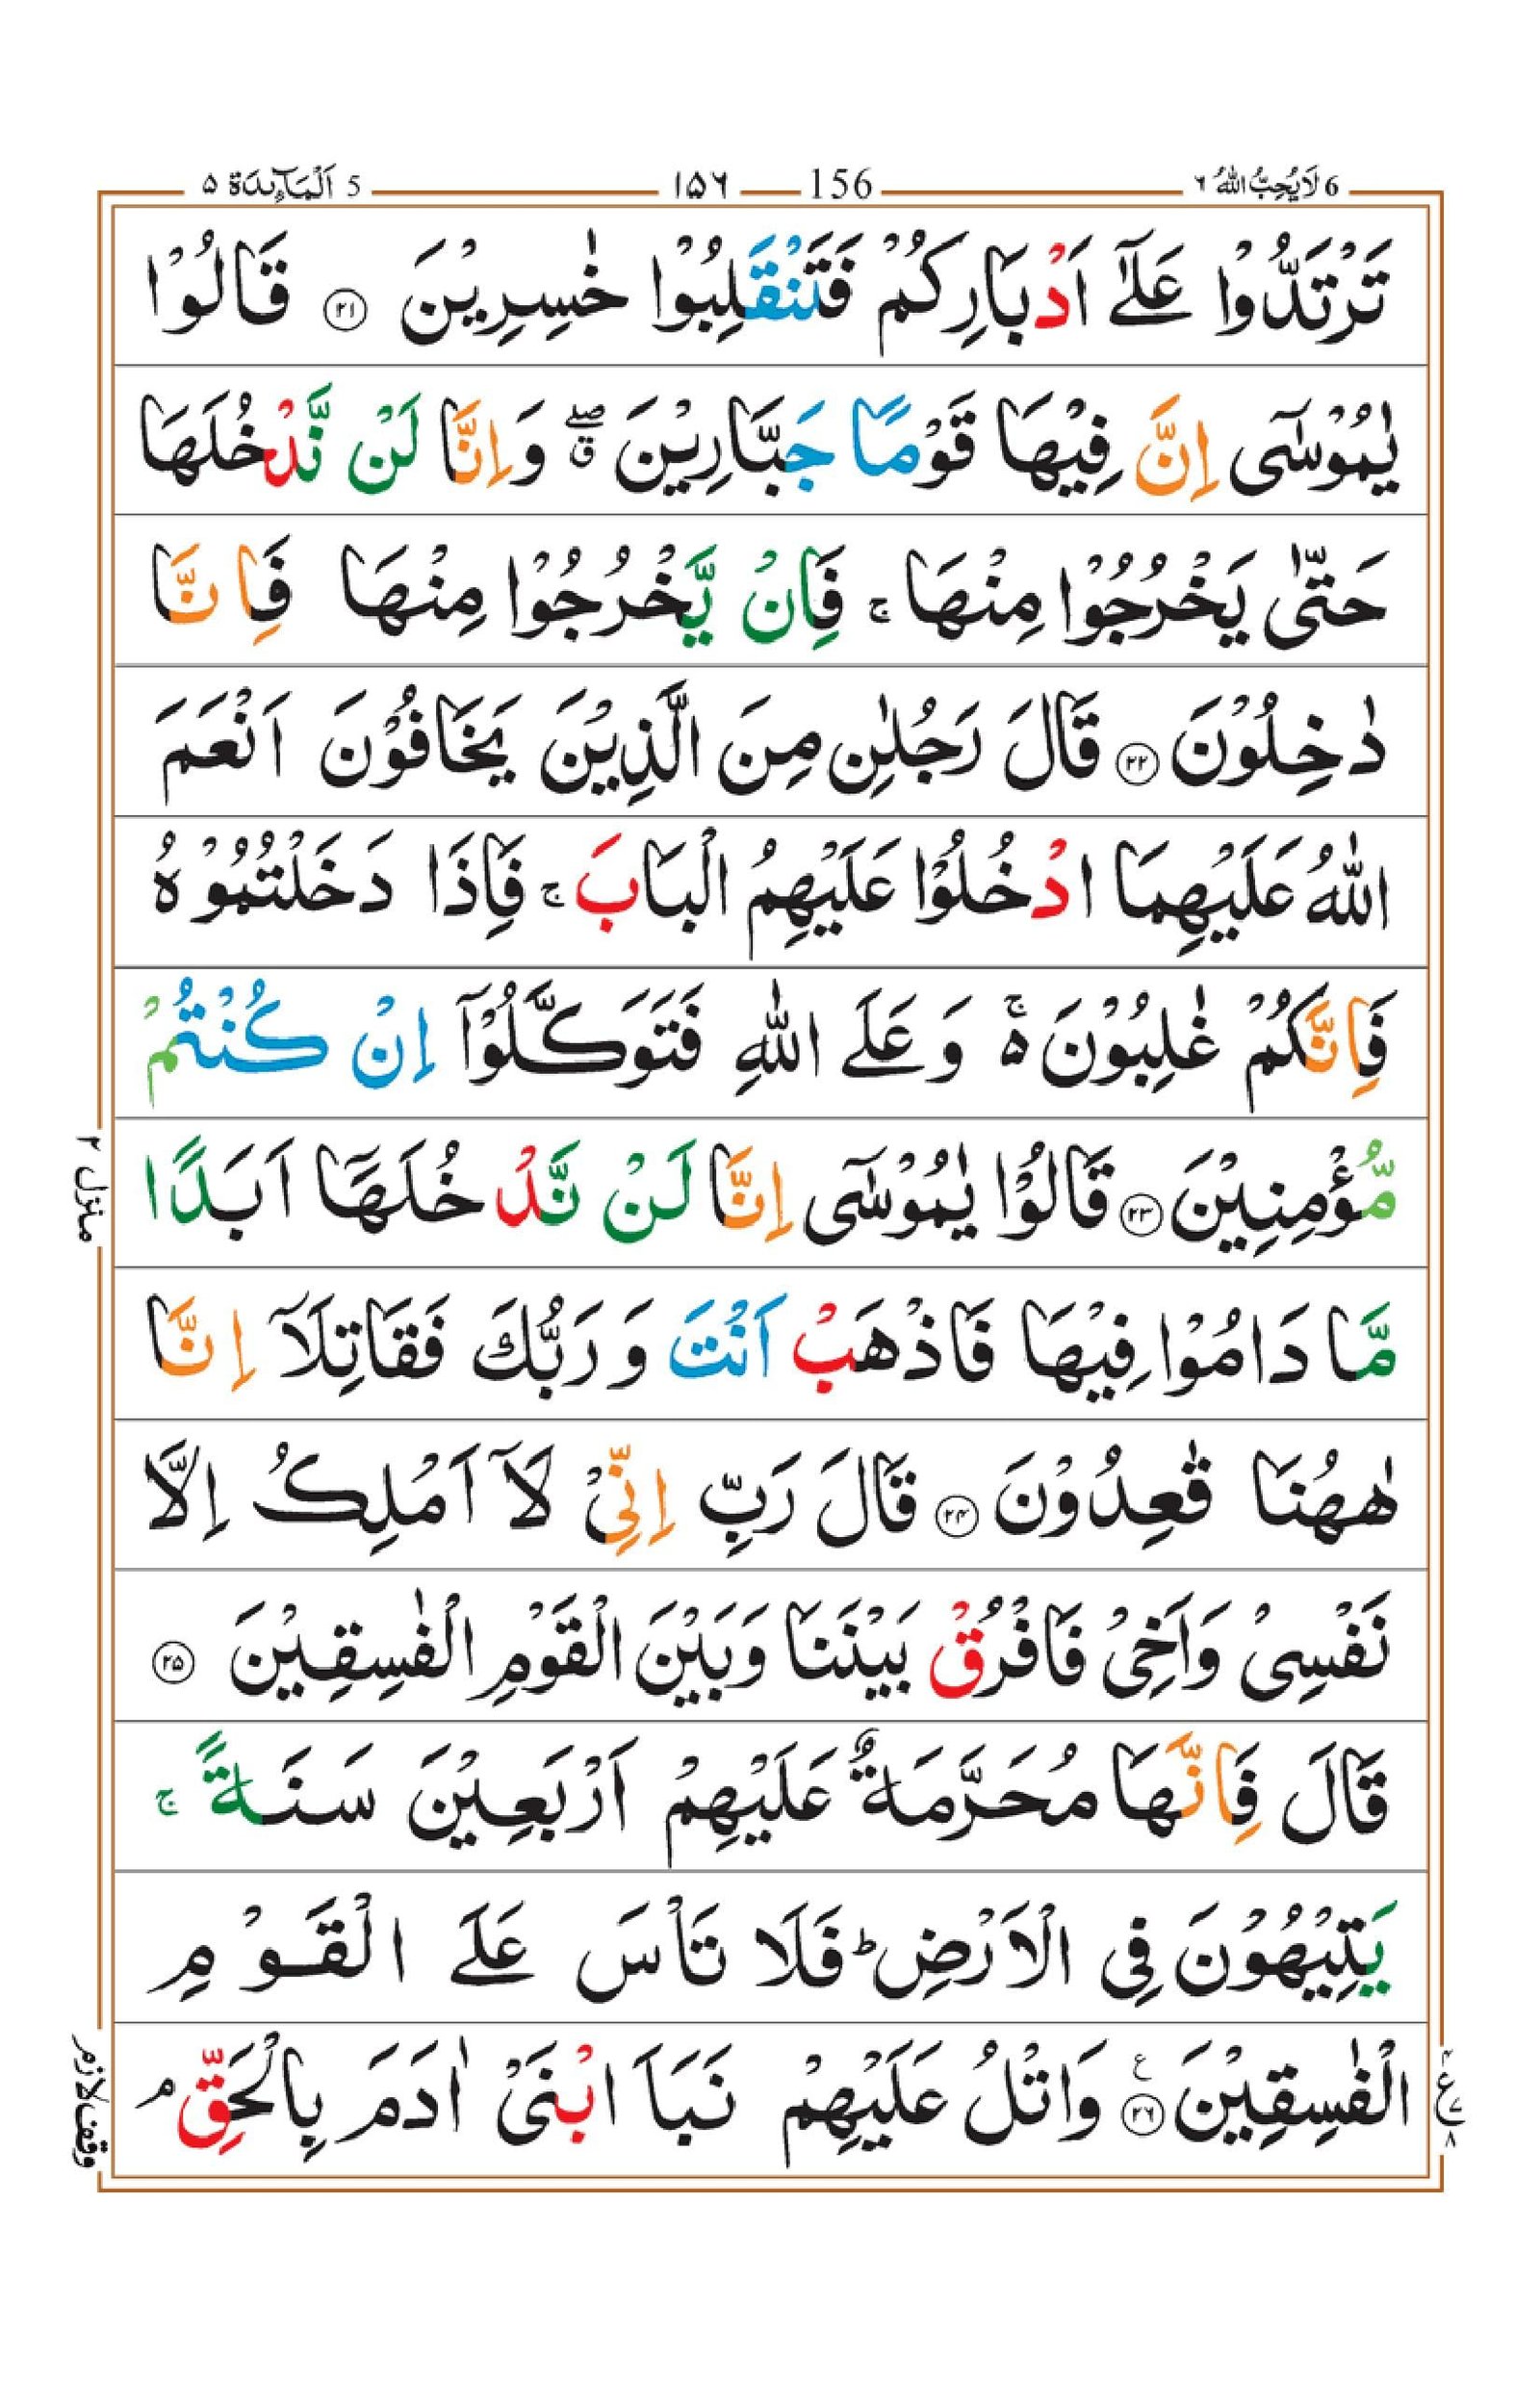 6 لَا يُحِبُّ اللّٰهُ ٦
156
١٥٦
5 اَلْمَآئِدَة ٥
تَرْتَدُّوْا عَلٰٓى اَدْبَارِكُمْ فَتَنْقَلِبُوْا خٰسِرِيْنَ ﴿٢١﴾ قَالُوْا
يٰمُوْسٰٓى اِنَّ فِيْهَا قَوْمًا جَبَّارِيْنَ ۖۗ وَاِنَّا لَنْ نَّدْخُلَهَا
حَتّٰى يَخْرُجُوْا مِنْهَا ۚ فَاِنْ يَّخْرُجُوْا مِنْهَا فَاِنَّا
دٰخِلُوْنَ ﴿٢٢﴾ قَالَ رَجُلٰنِ مِنَ الَّذِيْنَ يَخَافُوْنَ اَنْعَمَ
اللّٰهُ عَلَيْهِمَا ادْخُلُوْا عَلَيْهِمُ الْبَابَ ۚ فَاِذَا دَخَلْتُمُوْهُ
فَاِنَّكُمْ غٰلِبُوْنَ ۚ٥ وَعَلَى اللّٰهِ فَتَوَكَّلُوْۤا اِنْ كُنْتُمْ
مُّؤْمِنِيْنَ ﴿٢٣﴾ قَالُوْا يٰمُوْسٰٓى اِنَّا لَنْ نَّدْخُلَهَاۤ اَبَدًا
مَّا دَامُوْا فِيْهَا فَاذْهَبْ اَنْتَ وَرَبُّكَ فَقَاتِلَاۤ اِنَّا
هٰهُنَا قٰعِدُوْنَ ﴿٢٤﴾ قَالَ رَبِّ اِنِّىْ لَاۤ اَمْلِكُ اِلَّا
نَفْسِىْ وَاَخِىْ فَافْرُقْ بَيْنَنَا وَبَيْنَ الْقَوْمِ الْفٰسِقِيْنَ ﴿٢٥﴾
قَالَ فَاِنَّهَا مُحَرَّمَةٌ عَلَيْهِمْ اَرْبَعِيْنَ سَنَةً ۚ
يَتِيْهُوْنَ فِى الْاَرْضِ ؕ فَلَا تَاْسَ عَلَى الْقَوْمِ
الْفٰسِقِيْنَ ﴿٢٦﴾ ع وَاتْلُ عَلَيْهِمْ نَبَاَ ابْنَىْ اٰدَمَ بِالْحَقِّ ۘ
منزل ٢
وقف لازم
٤ ع ٧ ٨